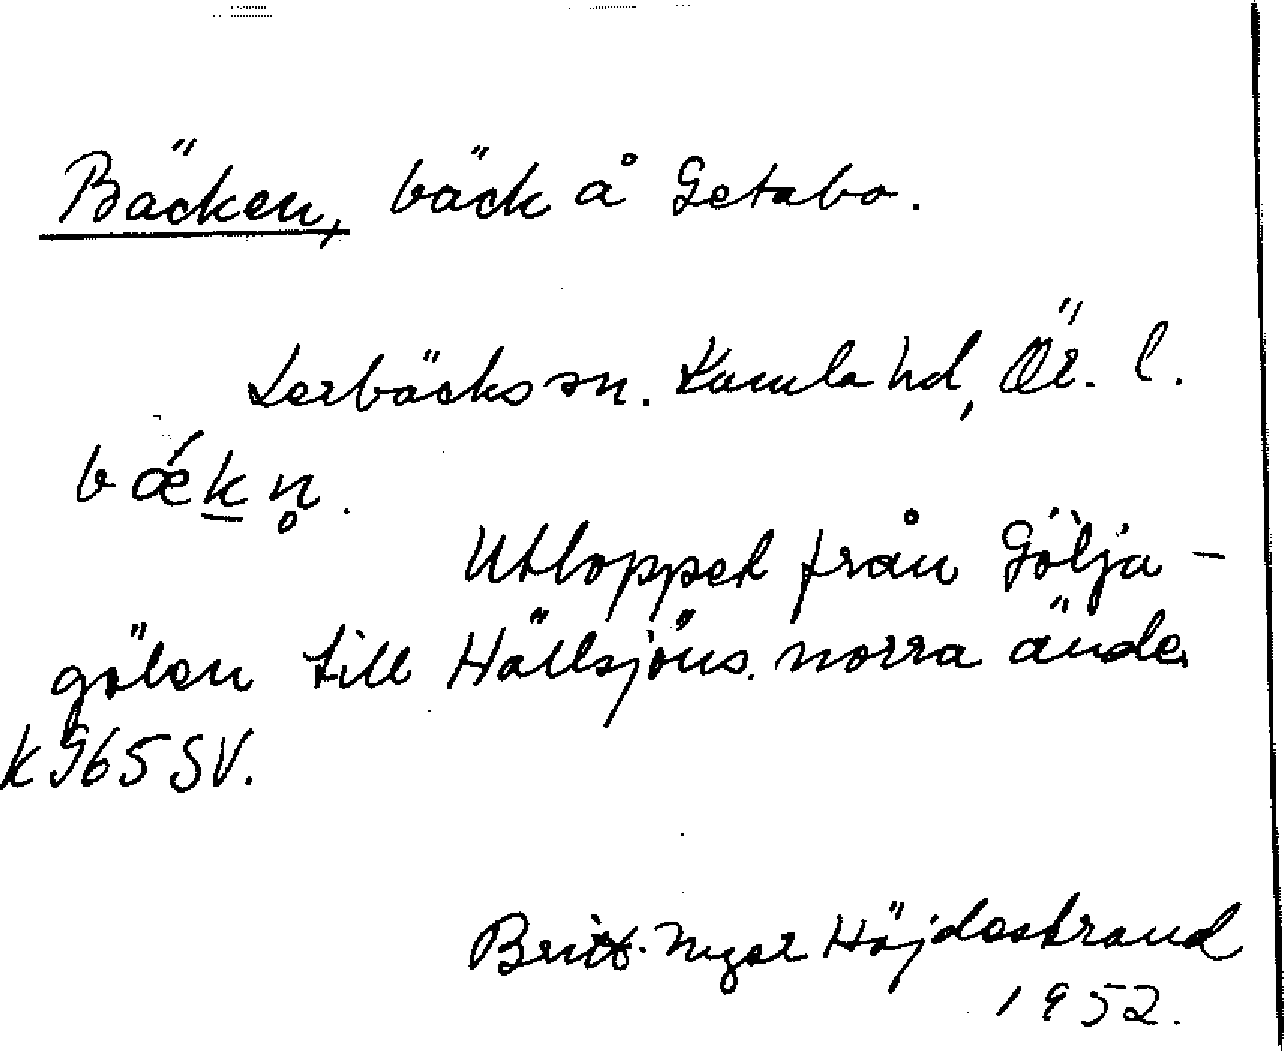 Bäcken, bäck å Getabo.
Lerbäcks sn. Kumla hd, Ör. l.
bǽkn̥.
Utloppet från Gölja-
gölen till Hällsjöns norra ände.
K 965 SV.
Britt Höjdestrand
1952.